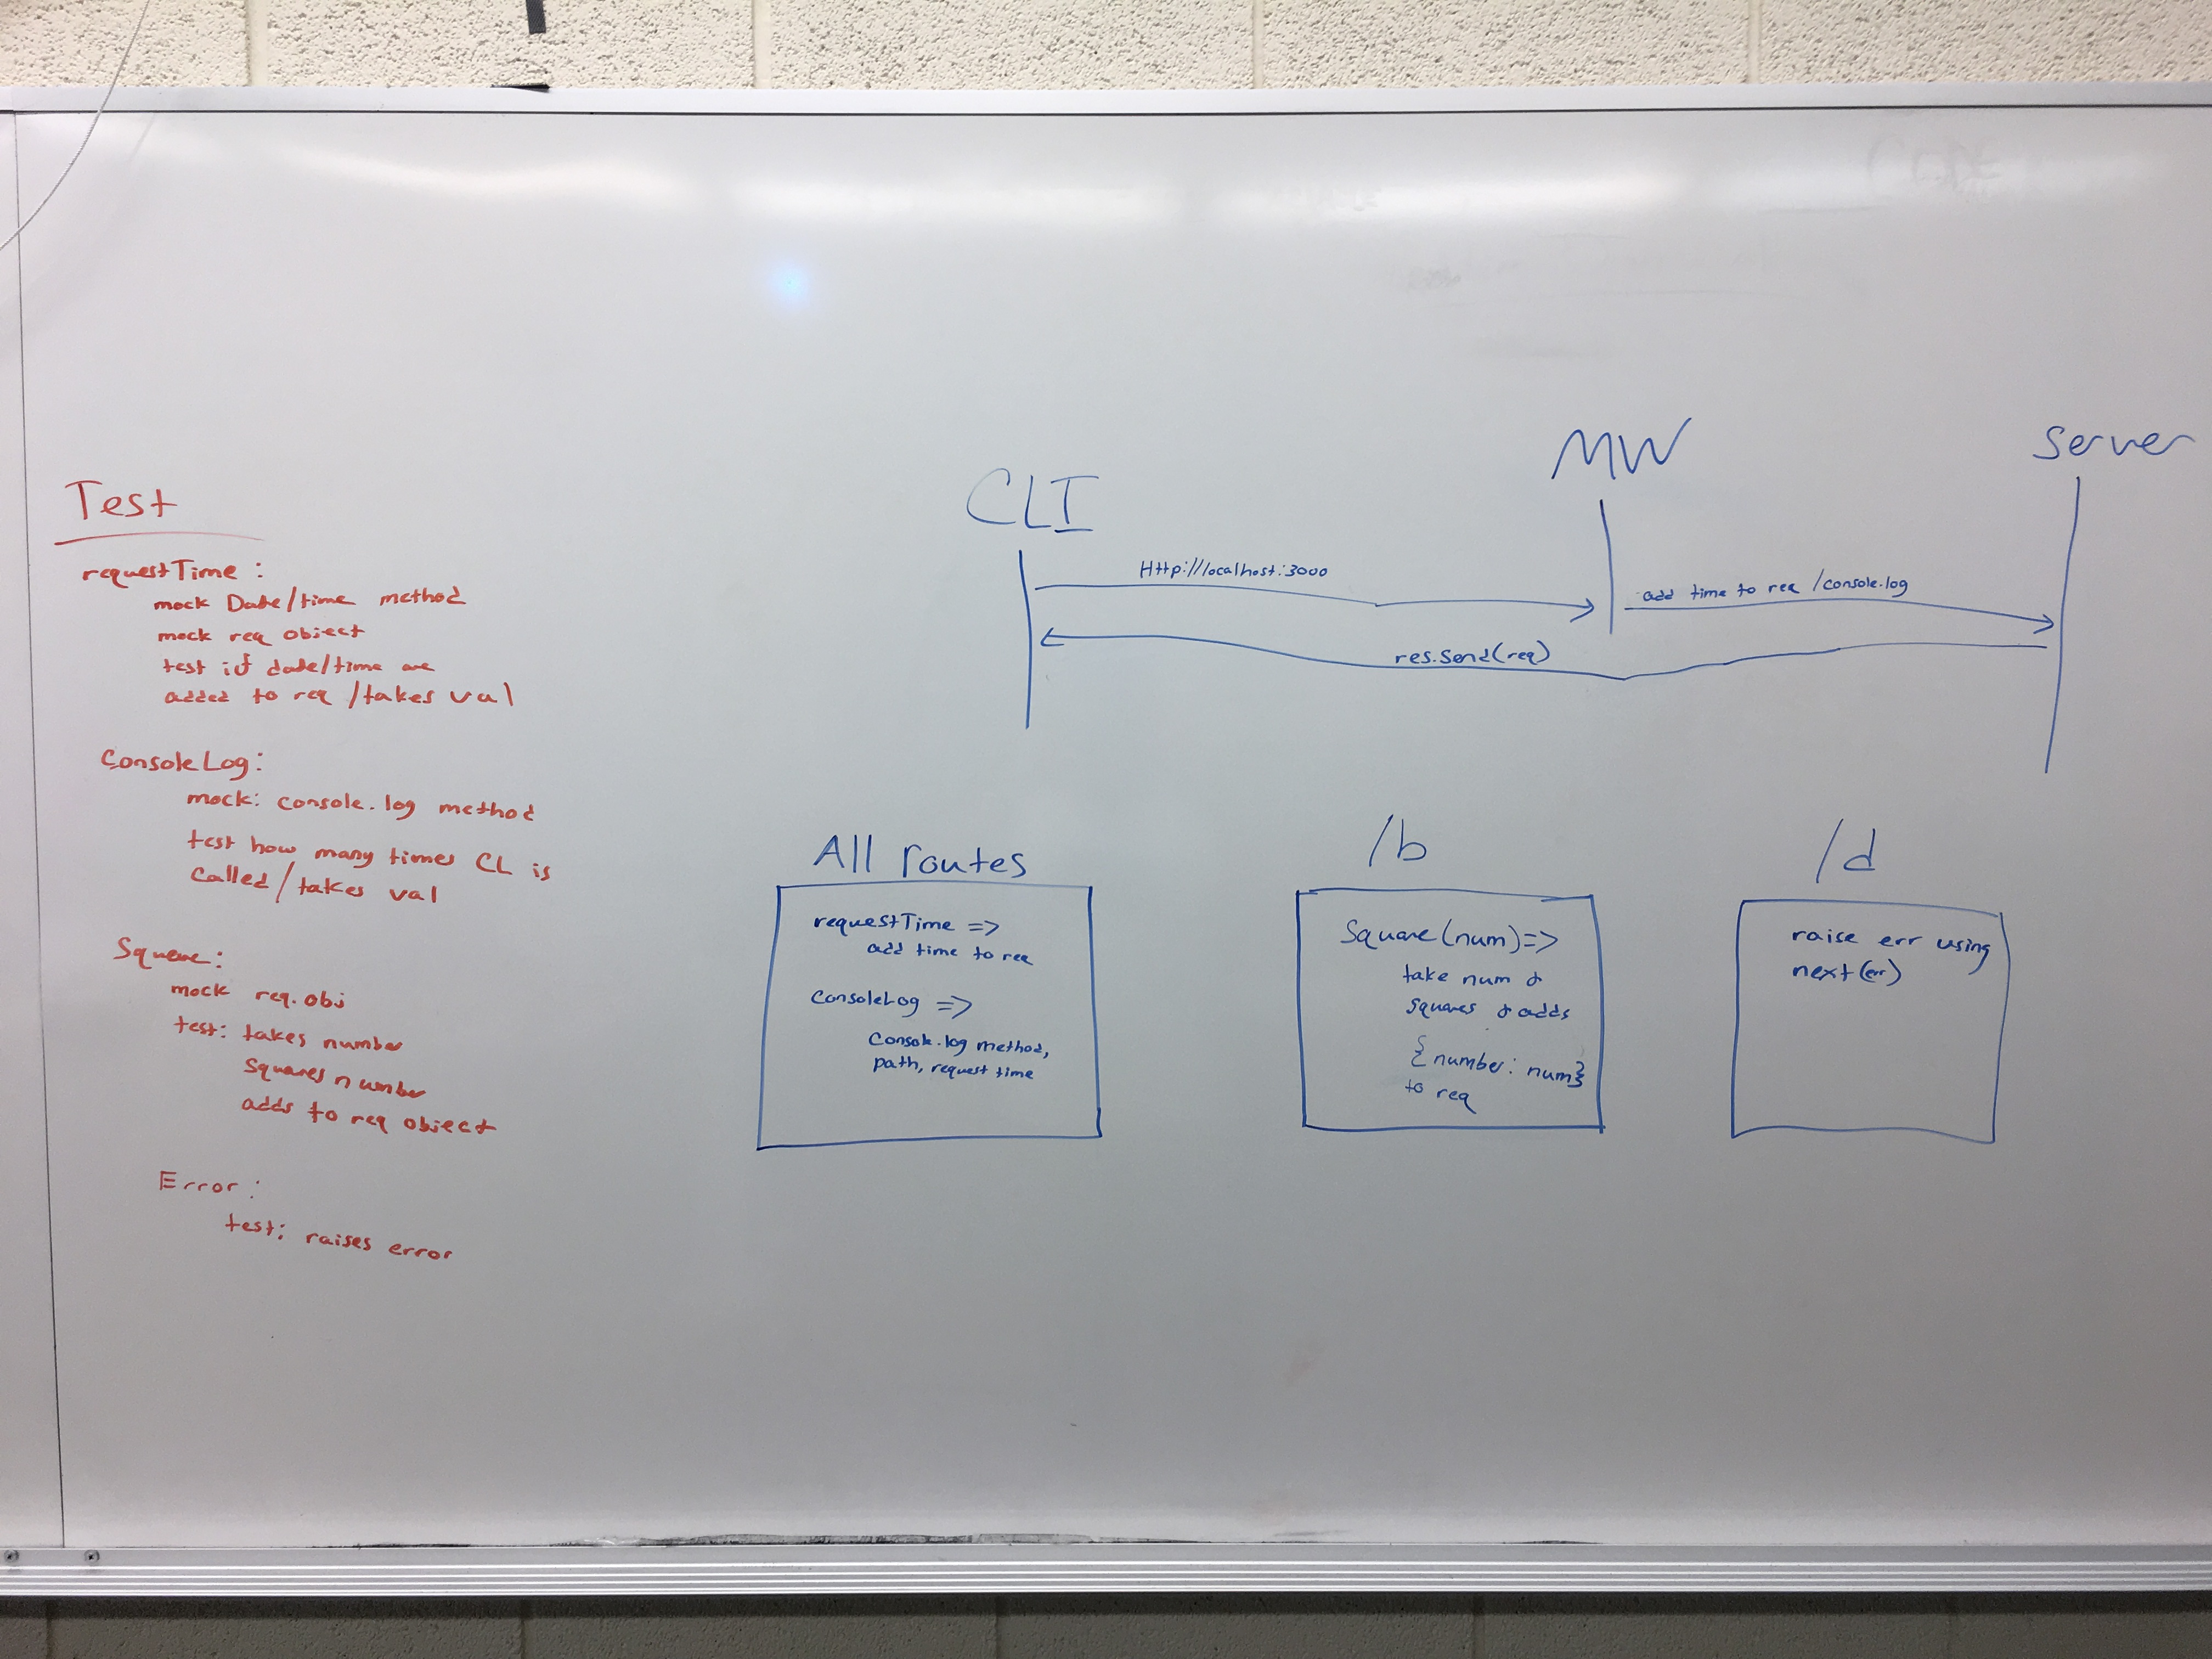 Test
requestTime:
mock Date/time method
mock req object
test if date/time are
added to req /takes val
ConsoleLog:
mock: console.log method
test how many times CL is
called/takes val
Square:
mock req.obj
test: takes number
squares number
adds to req object
Error:
test: raises error
CLI
MW
Server
Http://localhost:3000
add time to req /console.log
res.send(req)
All routes
requestTime =>
add time to req
ConsoleLog =>
Console.log method,
path, request time
/b
Square(num)=>
take num &
squares & adds
{number: num}
to req
/d
raise err using
next(err)